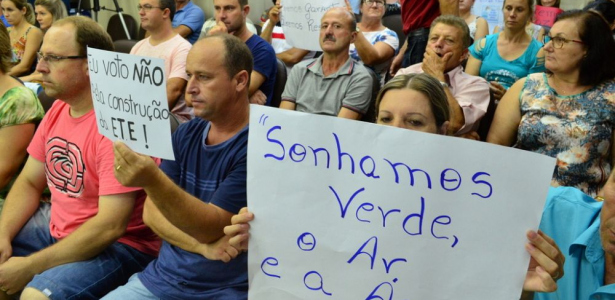 EU VOTO NÃO
pela construção
da
ETE !
"Sonhamos
Verde,
o Ar
e a